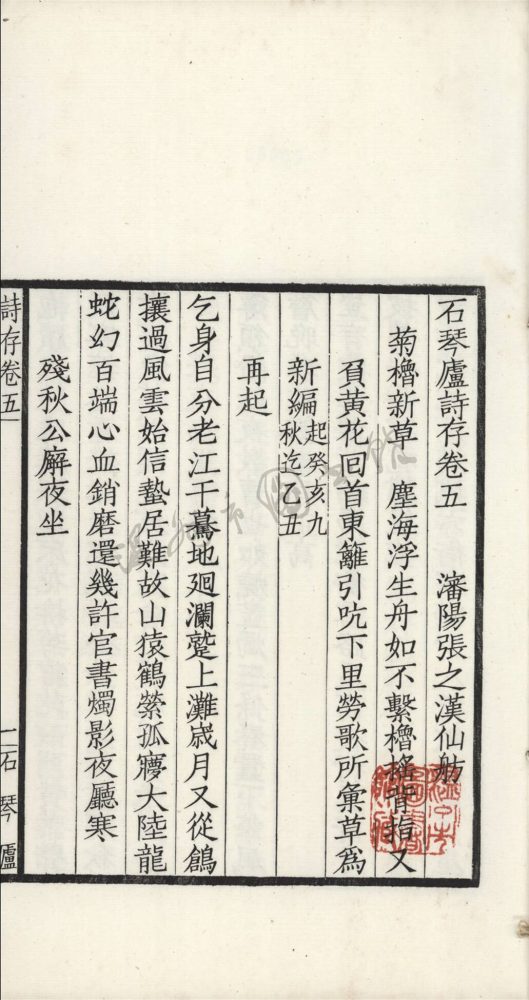 石琴廬詩存卷五　瀋陽張之漢仙舫
菊櫓新草　塵海浮生舟如不繫櫓搖背指又
負黃花回首東籬引吭下里勞歌所彙草爲
新編起癸亥九秋迄乙丑
再起
乞身自分老江干驀地迴瀾蹵上灘歲月又從鷁
攘過風雲始信蟄居難故山猿鶴縈孤寱大陸龍
蛇幻百端心血銷磨還幾許官書燭影夜廳寒
殘秋公廨夜坐
詩存卷五
一石琴廬